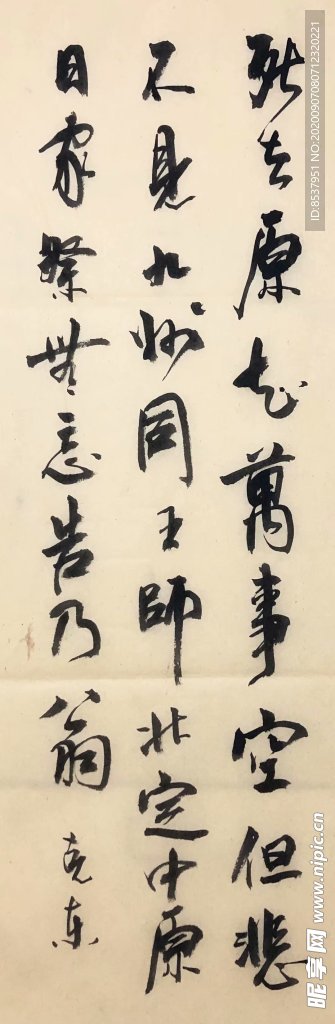 死去原知萬事空但悲
不見九州同王師北定中原
日家祭無忘告乃翁
克東
ID:8537951 NO:20200907080712320221
昵享网 www.nipic.cn